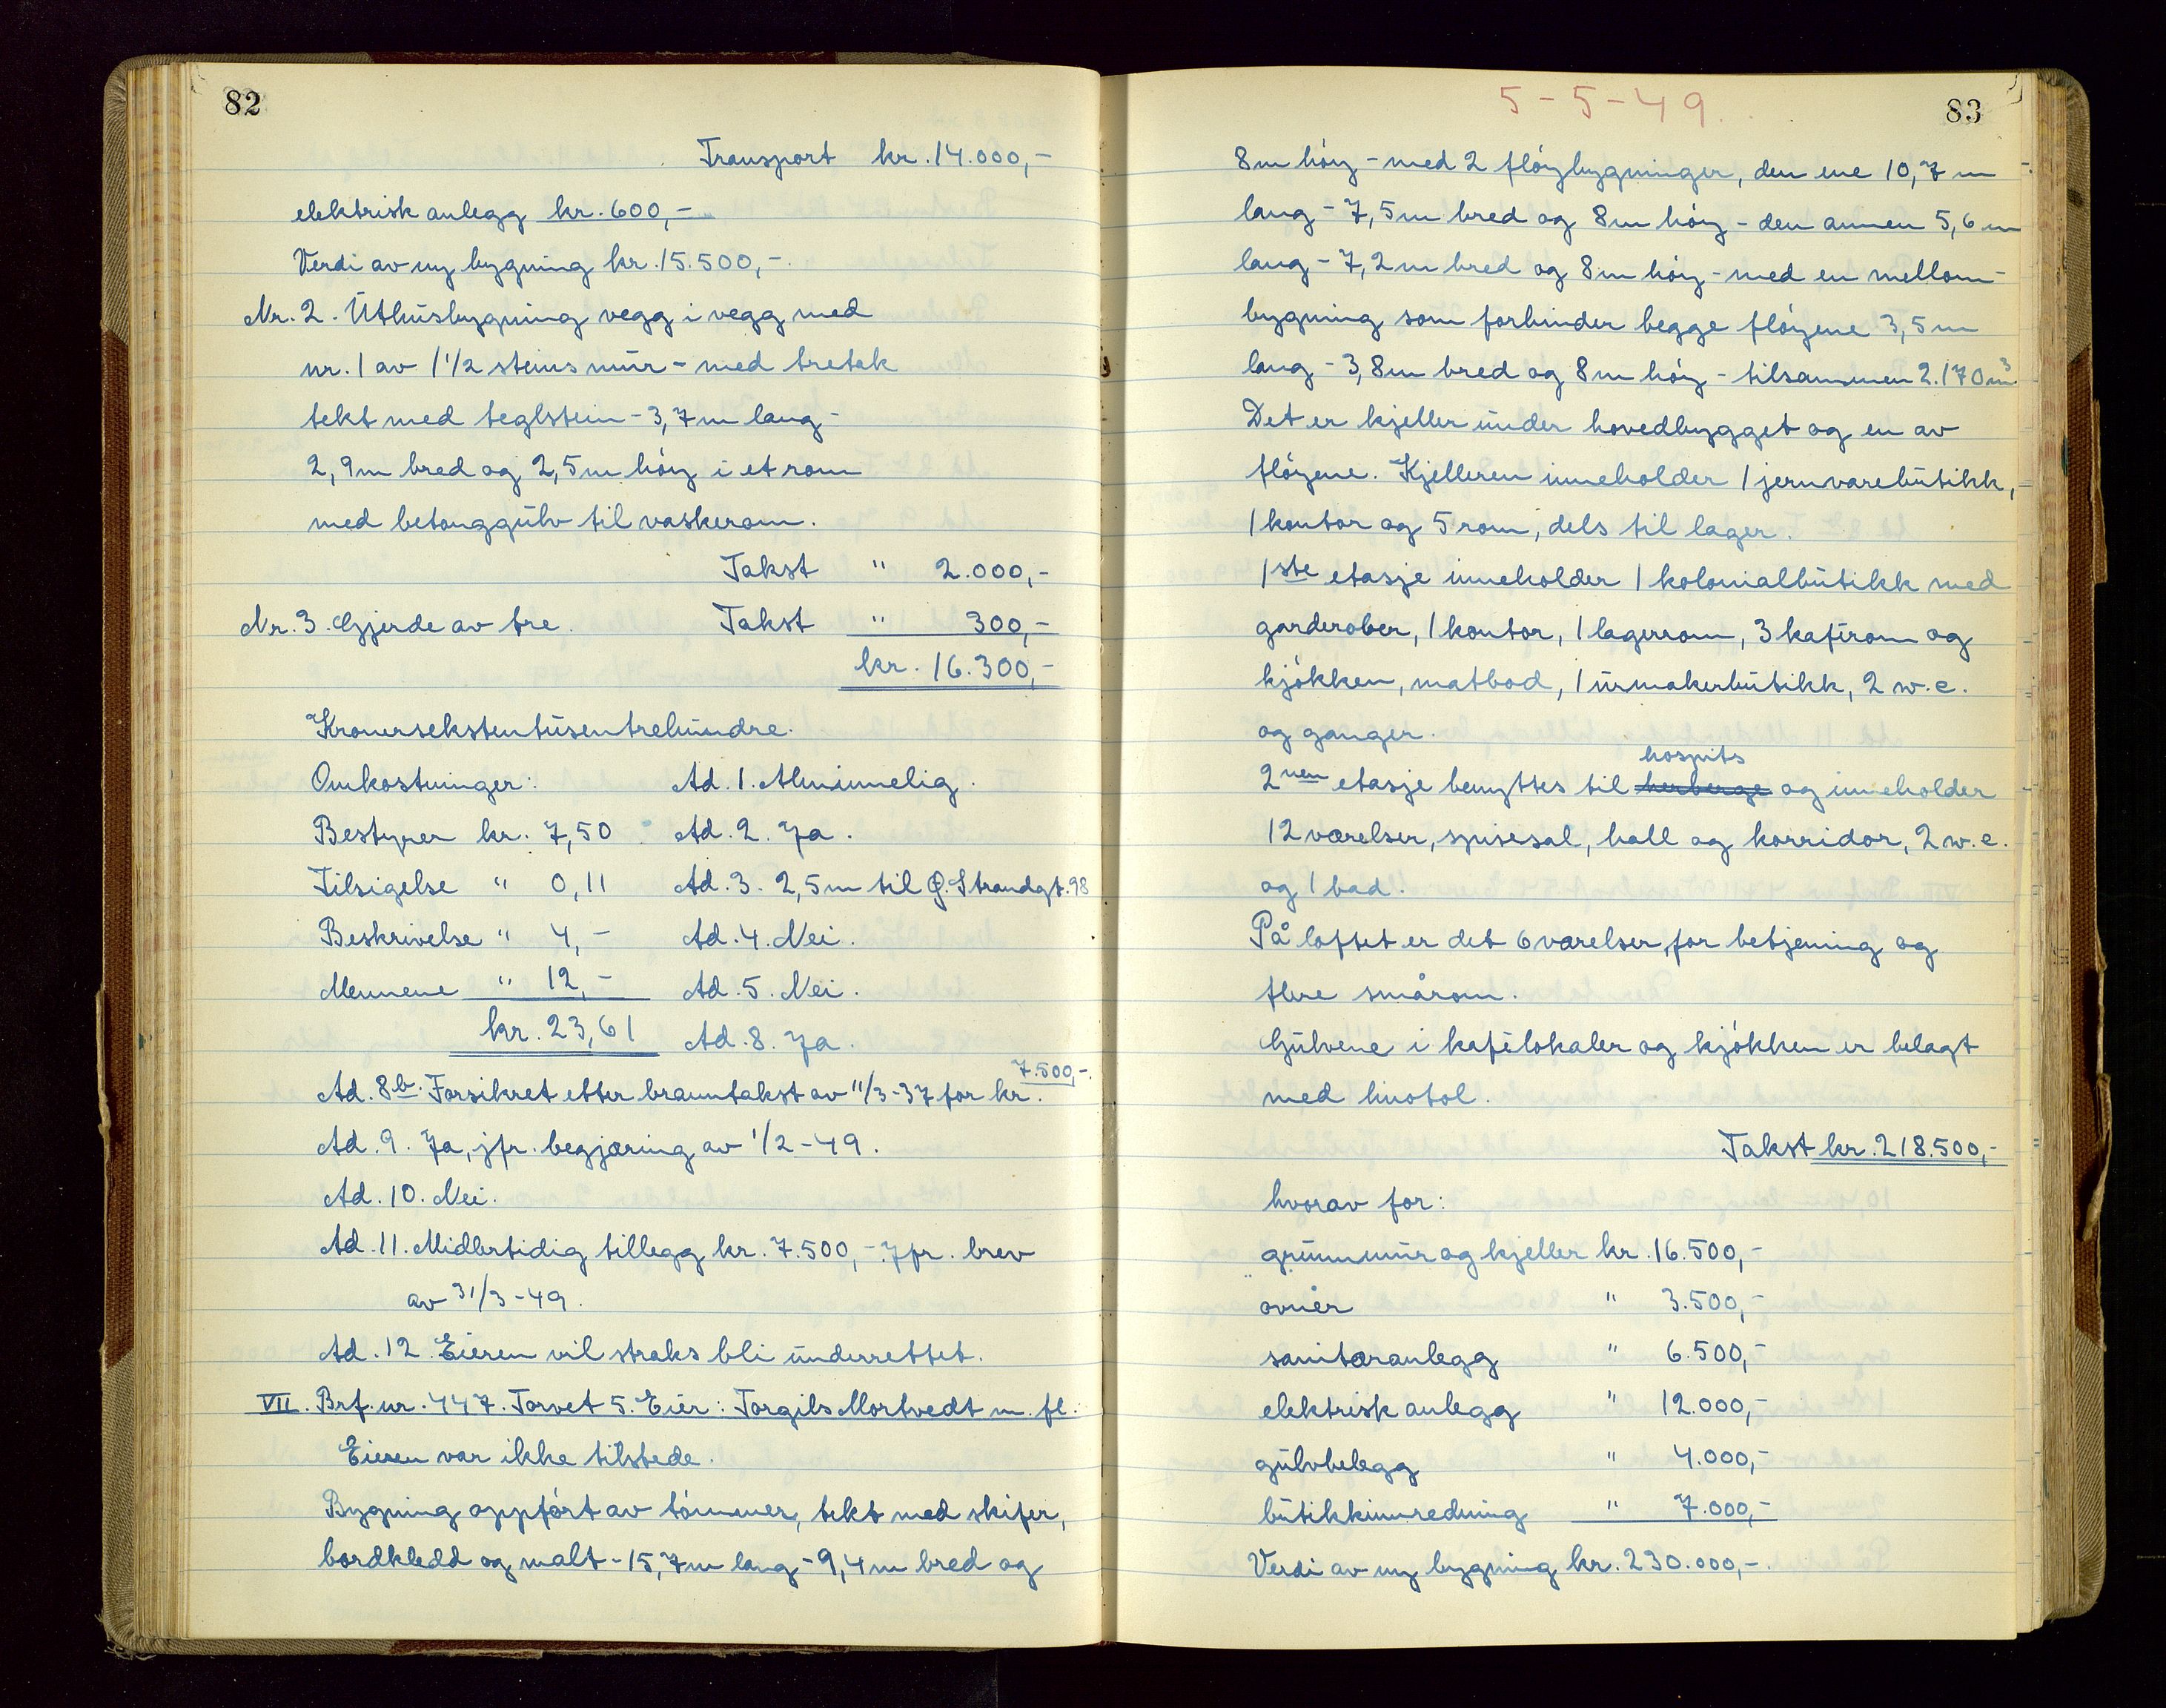 82
Transport kr. 14.000,-
elektrisk anlegg kr. 600,-
Verdi av ny bygning kr. 15.500,-.
Nr. 2. Uthusbygning vegg i vegg med
nr. 1 av 1 1/2 steins mur - med tretak
tekt med teglstein - 3,7 m lang -
2,9 m bred og 2,5 m høy i et rom
med betonggulv til vaskerom.
Takst " 2.000,-
Nr. 3. Gjerde av tre. Takst " 300,-
kr. 16.300,-
Kronersekstentusentrehundre.
Omkostninger: Ad. 1. Alminnelig.
Bestyrer kr. 7,50 Ad. 2. Ja.
Tilsigelse " 0,11 Ad. 3. 2,5 m til Ø. Strandgt. 98
Beskrivelse " 4,- Ad. 4. Nei.
Mennene " 12,- Ad. 5. Nei.
kr. 23,61 Ad. 8. Ja.
Ad. 8b. Forsikret etter branntakst av 11/3-37 for kr. 7.500,-.
Ad. 9. Ja, jfr. begjæring av 1/2-49.
Ad. 10. Nei.
Ad. 11. Midlertidig tillegg kr. 7.500,- Jfr. brev
av 31/3-49.
Ad. 12. Eieren vil straks bli underrettet.
VII. Brf. nr. 447. Torvet 5. Eier: Torgils Mortvedt m. fl.
Eieren var ikke tilstede.
Bygning oppført av tømmer, tekt med skifer,
bordkledd og malt - 15,7 m lang - 9,4 m bred og
5-5-49.
83
8 m høy - med 2 fløybygninger, den ene 10,7 m
lang - 7,5 m bred og 8 m høy - den annen 5,6 m
lang - 7,2 m bred og 8 m høy - med en mellom-
bygning som forbinder begge fløyene 3,5 m
lang - 3,8 m bred og 8 m høy - tilsammen 2.170 m³.
Det er kjeller under hovedbygget og en av
fløyene. Kjelleren inneholder 1 jernvarebutikk,
1 kontor og 5 rom, dels til lager.
1ste etasje inneholder 1 kolonialbutikk med
garderober, 1 kontor, 1 lagerrom, 3 kaférom og
kjøkken, matbod, 1 urmakerbutikk, 2 w.c.
og ganger.
hospits
2nen etasje benyttes til herberge og inneholder
12 værelser, spisesal, hall og korridor, 2 w.c.
og 1 bad.
På loftet er det 6 værelser, for betjening og
flere smårom.
Gulvene i kafélokaler og kjøkken er belagt
med linotol.
Takst kr. 218.500,-
hvorav for:
grunnmur og kjeller kr. 16.500,-
ovner " 3.500,-
sanitæranlegg " 6.500,-
elektrisk anlegg " 12.000,-
gulvbelegg " 4.000,-
butikkinnredning " 7.000,-
Verdi av ny bygning kr. 230.000,-.